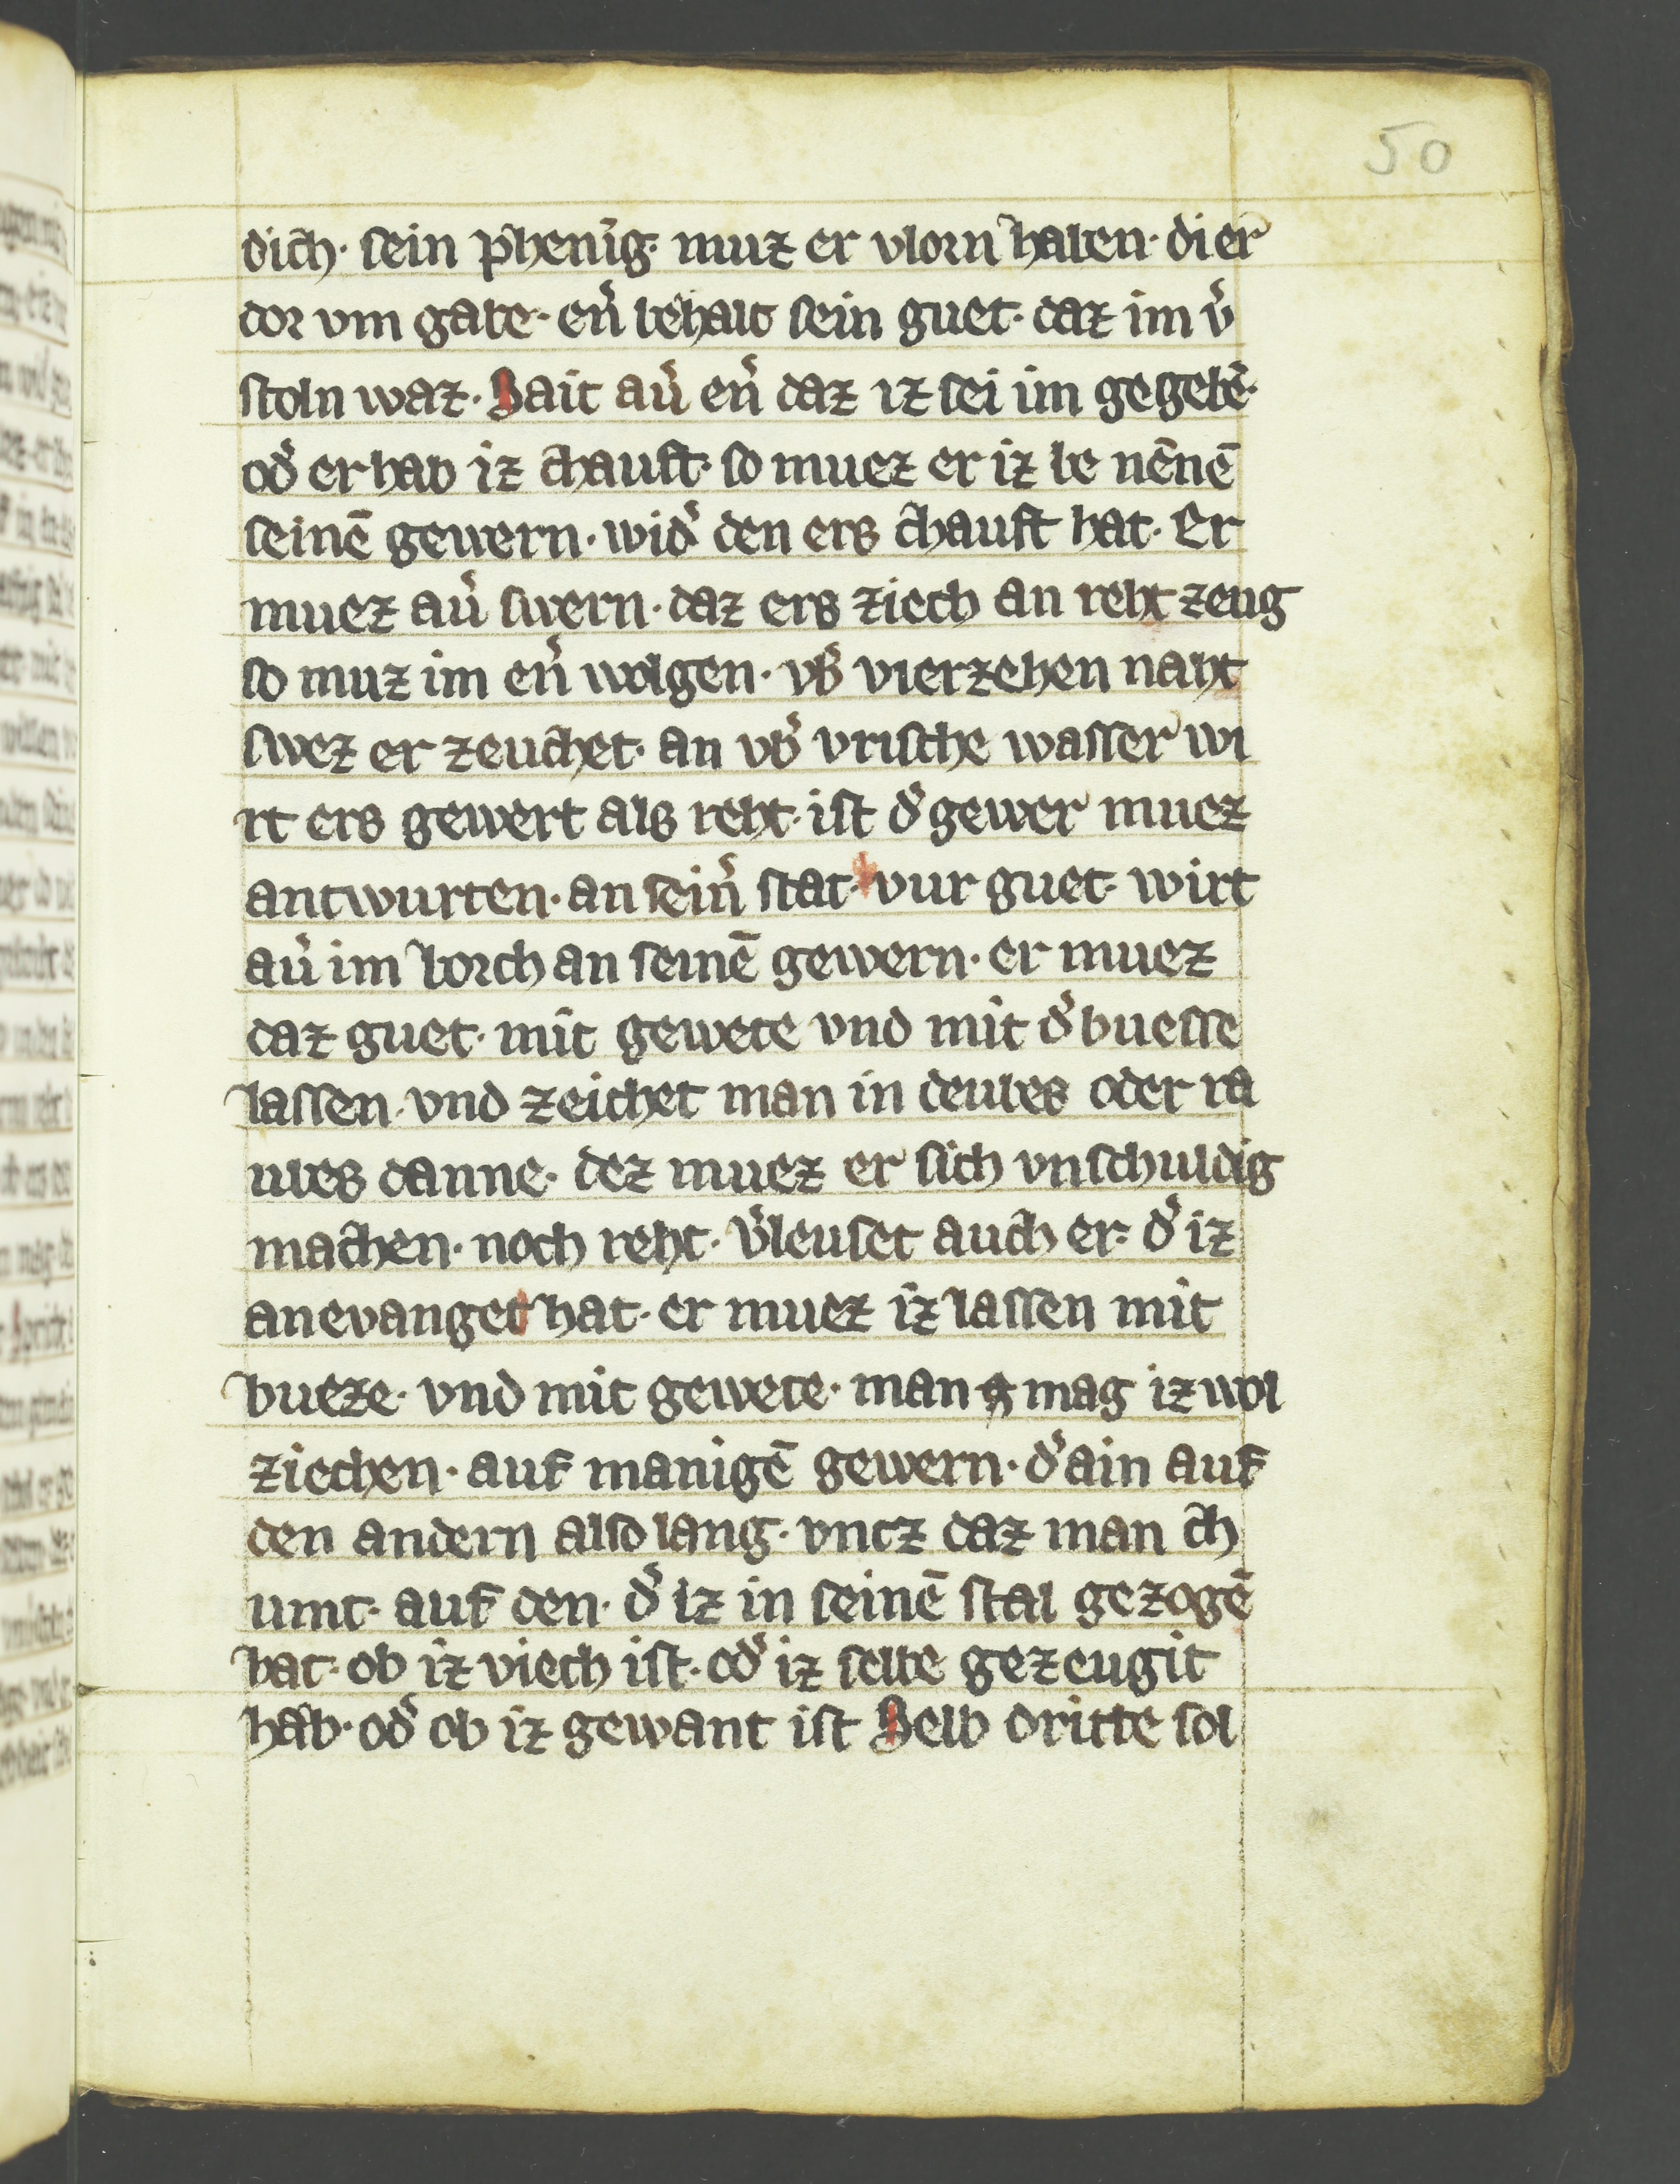 50
dich· sein phenig· muz er vlorn haben· di er
dor vm gabe· en̾ behalt sein guet· daz im v̾
stoln waz· Sait au̾ en̾ daz iz sei im gegebē·
od̾ er hab iz chauft· so muez er iz be nēnē
seinē gewern· wid̾ den ers chauft hat· Er
muez au̾ swern· daz ers ziech an reht zeug
so muz im en̾ wolgen· vb̾ vierzehen naht
swez er zeuchet· an vb̾ vrische wasser wi
rt ers gewert als reht· ist d̾ gewer muez
antwurten· an sein̾ stat· vur guet· wirt
au̾ im borch an seinē gewern· er muez
daz guet· mit gewete vnd mit d̾ buesse
lassen· vnd zeichet man in deubes oder ra
ubes danne· dez muez er sich vnschuldig
machen· noch reht· v̾leuset auch er· d̾ iz
anevanget hat· er muez iz lassen mit
bueze· vnd mit gewete· man g mag iz wol
ziechen· auf manigē gewern· d̾ ain auf
den andern also lang· vntz daz man ch
umt· auf den· d̾ iz in seinē stal gezogē
hat· ob iz viech ist· od̾ iz selbe gezeugit
hab· od̾ ob iz gewant ist Selb dritte sol